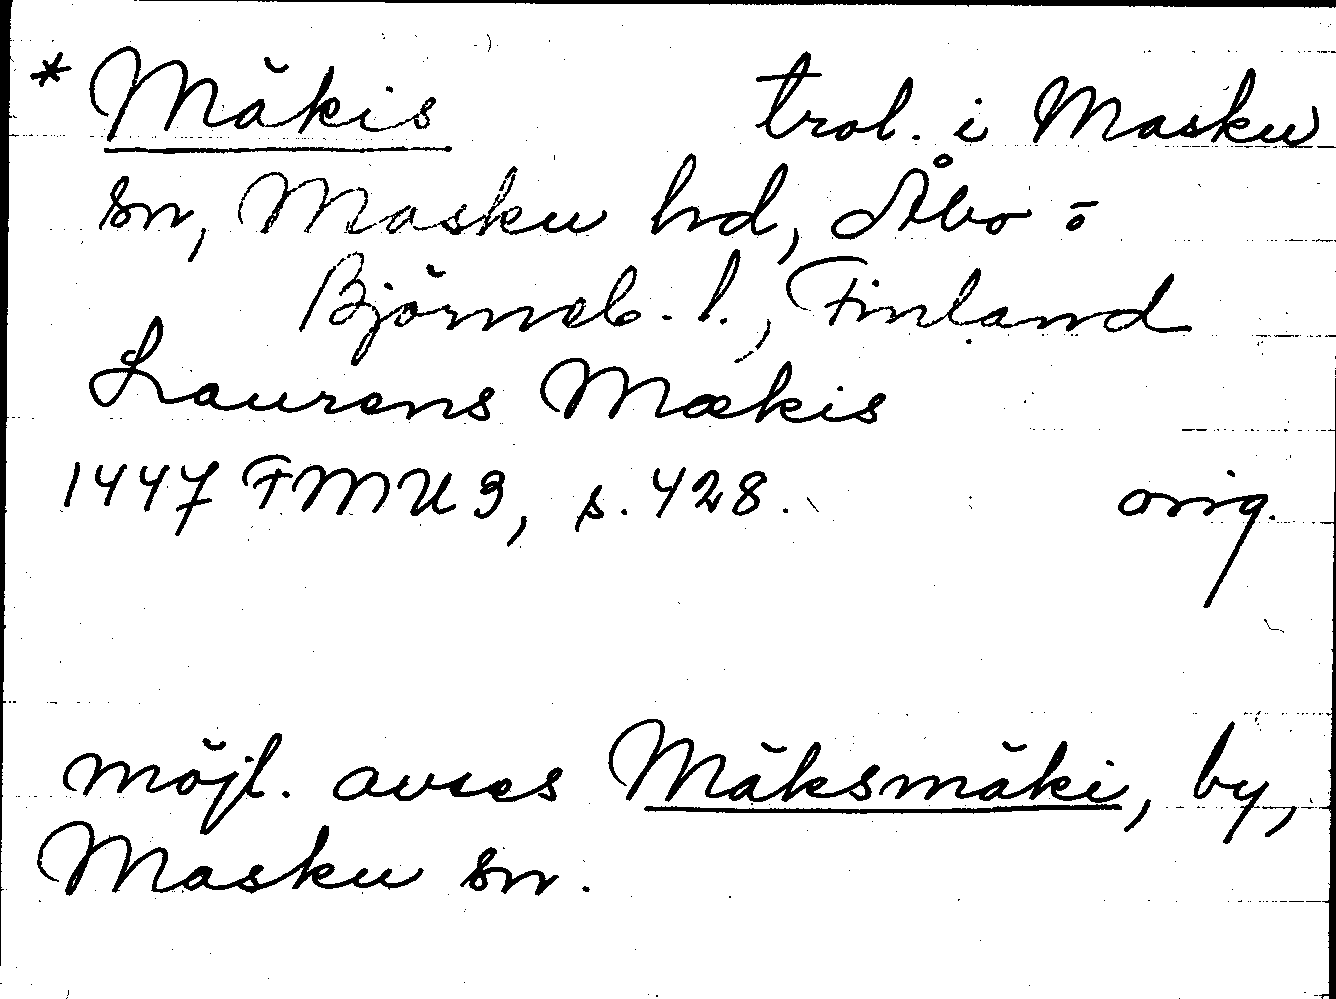 * Mäkis trol. i Masku
sn, Masku hd, Åbo-
Björneb. l., Finland
Laurens Mækis
1447 FMU 3, s. 428. orig.
möjl. avses Mäksmäki, by,
Masku sn.